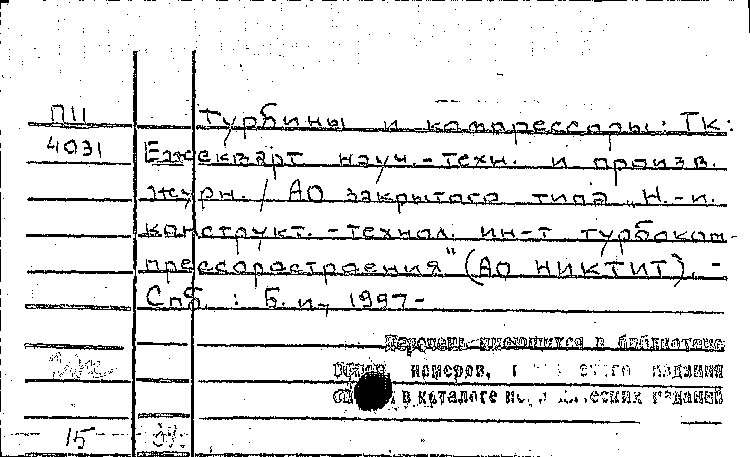 П11 Турбины и компрессоры: ТК:
4031 Ежекварт науч.-техн. и произв.
журн. / АО закрытого типа „Н.-и.
конструкт.-технол. ин-т турбоком-
прессоростроения" (АО НИКТИТ). -
Спб. : Б. и., 1997-
Перечень имеющихся в библиотеке
номеров, издания
в каталоге изданий
15